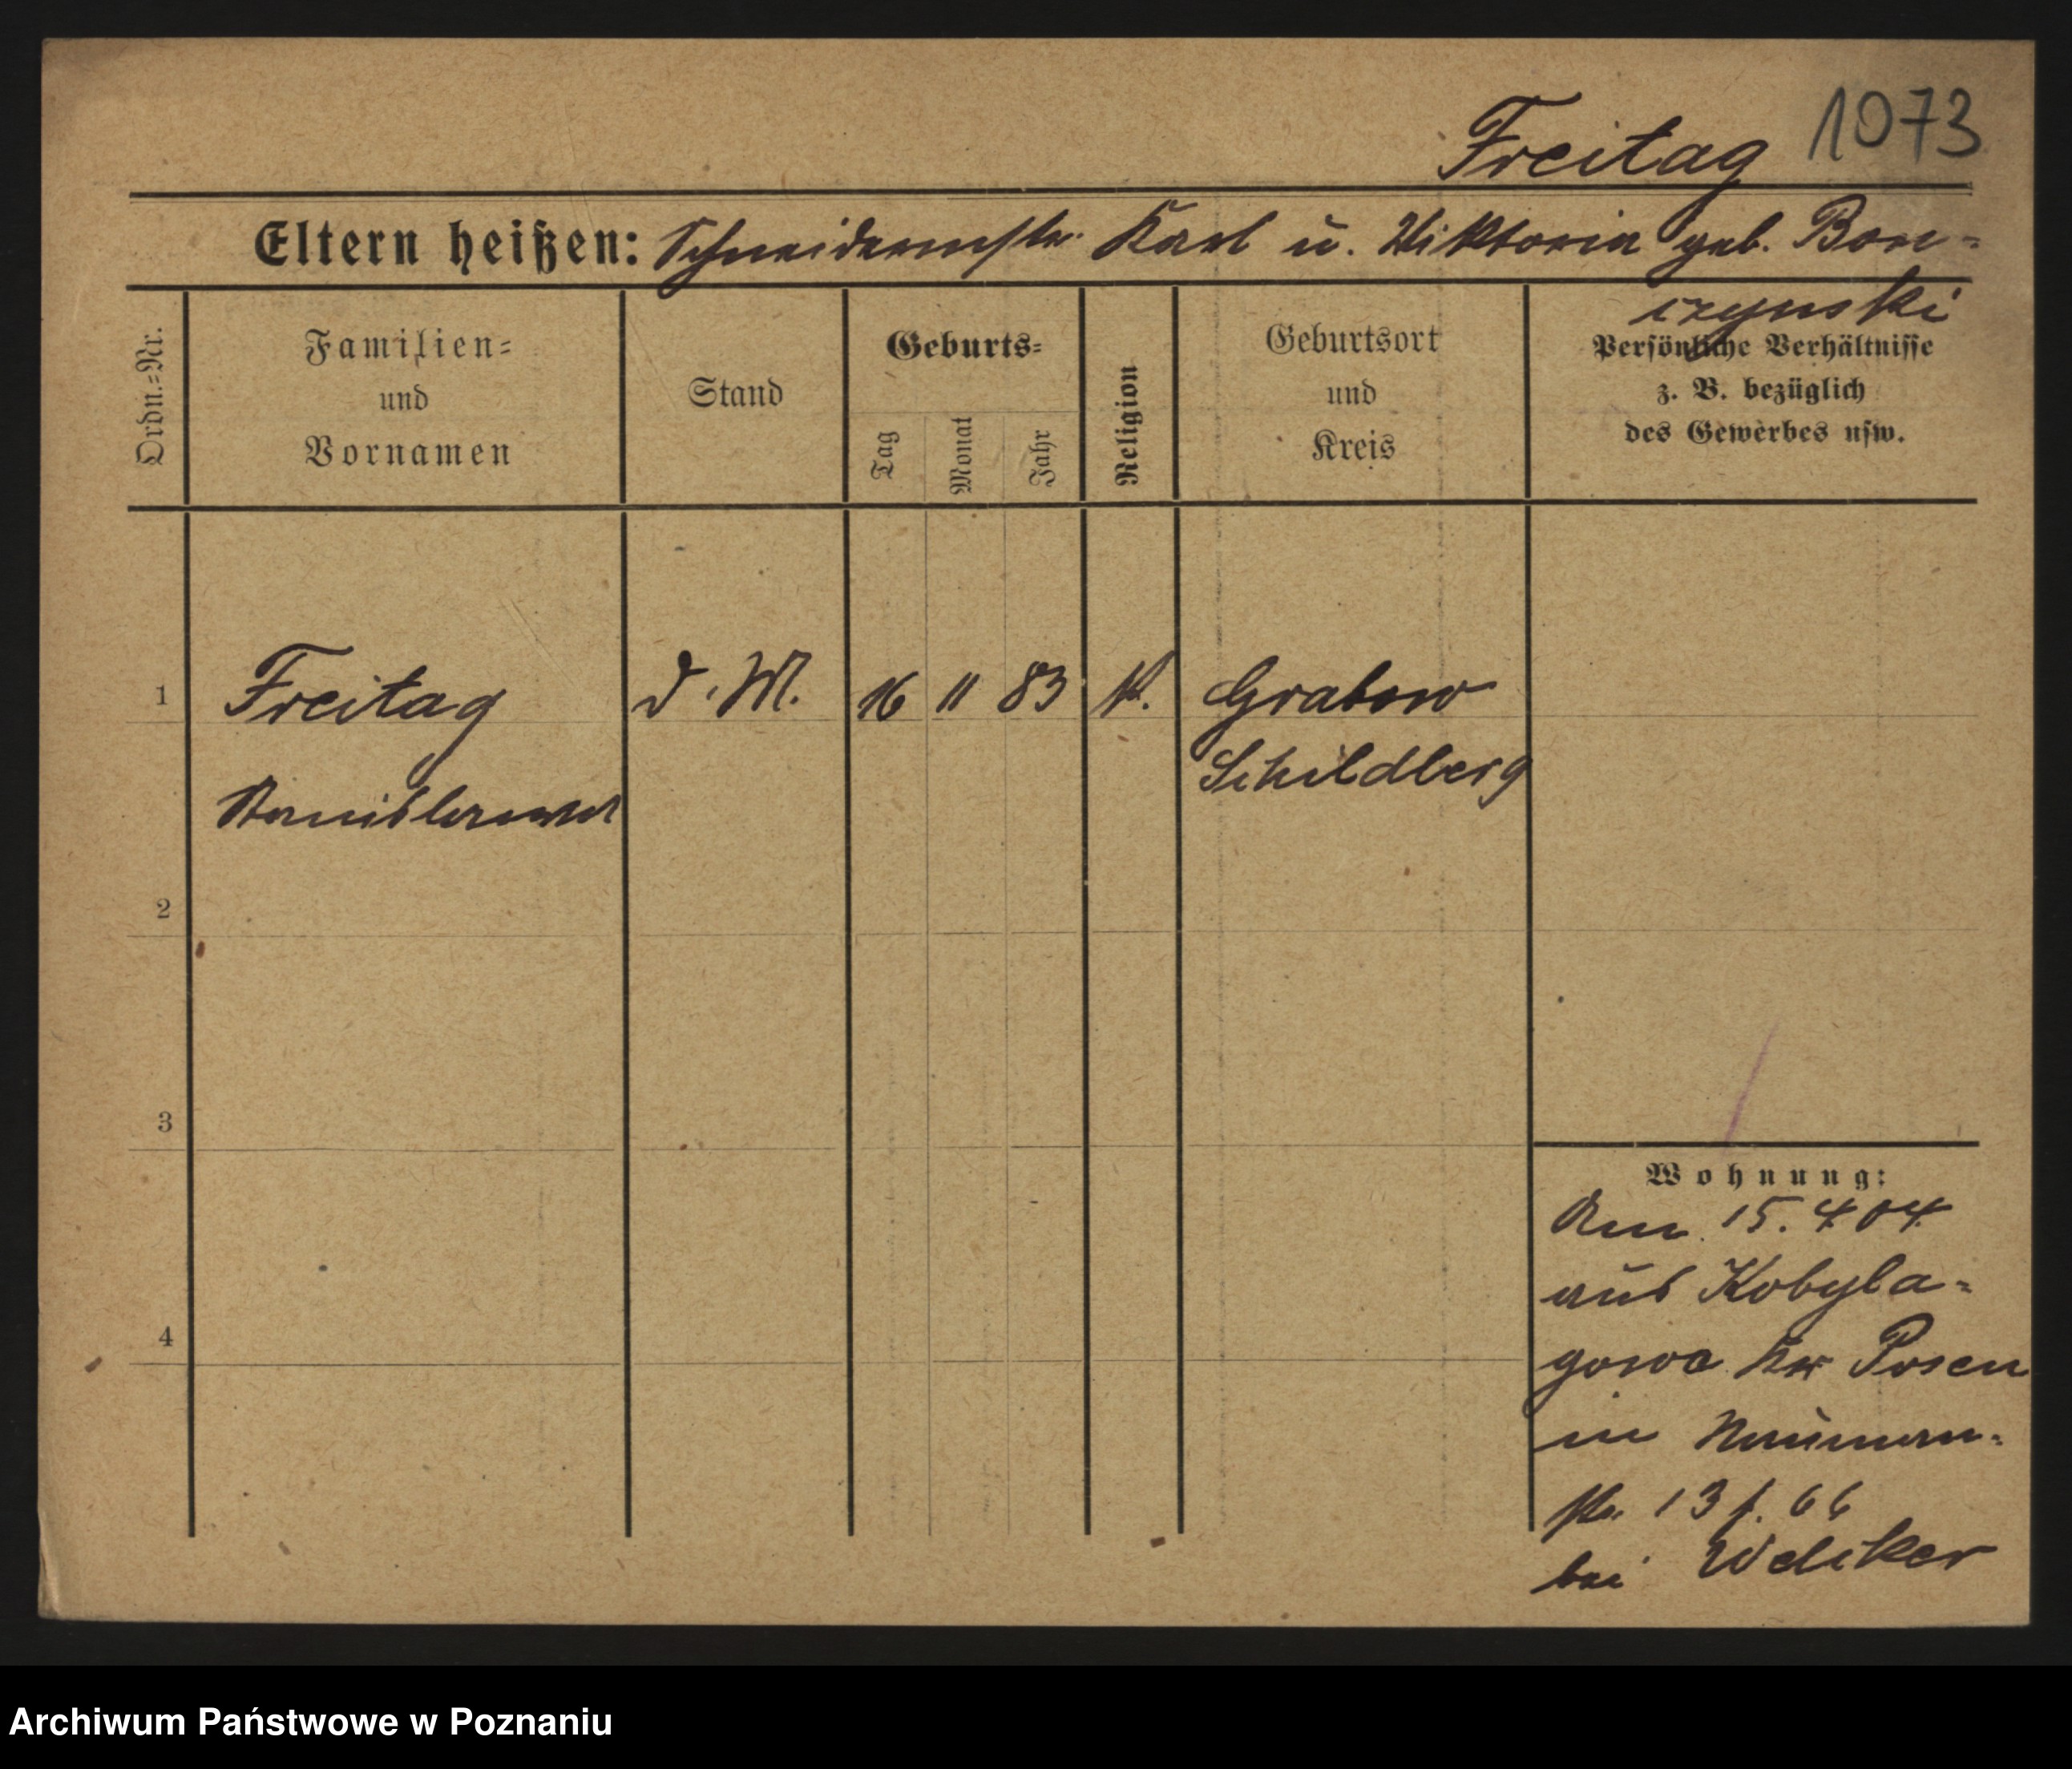 Freitag 1073
Eltern heißen: Schneidermstr. Karl u. Wiktoria geb. Bon-
czynski
Ordn.-Nr.
Familien-
und
Vornamen
Stand
Geburts-
Tag
Monat
Jahr
Religion
Geburtsort
und
Kreis
Persönliche Verhältnisse
z. B. bezüglich
des Gewerbes usw.
1 Freitag d. M. 16 11 83 k. Grabow
Schildberg
Stanislawa
2
3
4
Wohnung:
Am 15. 4. 04
aus Kobyla-
gowo Kr Posen
in Nauman-
str. 13 b.
bei
Archiwum Państwowe w Poznaniu